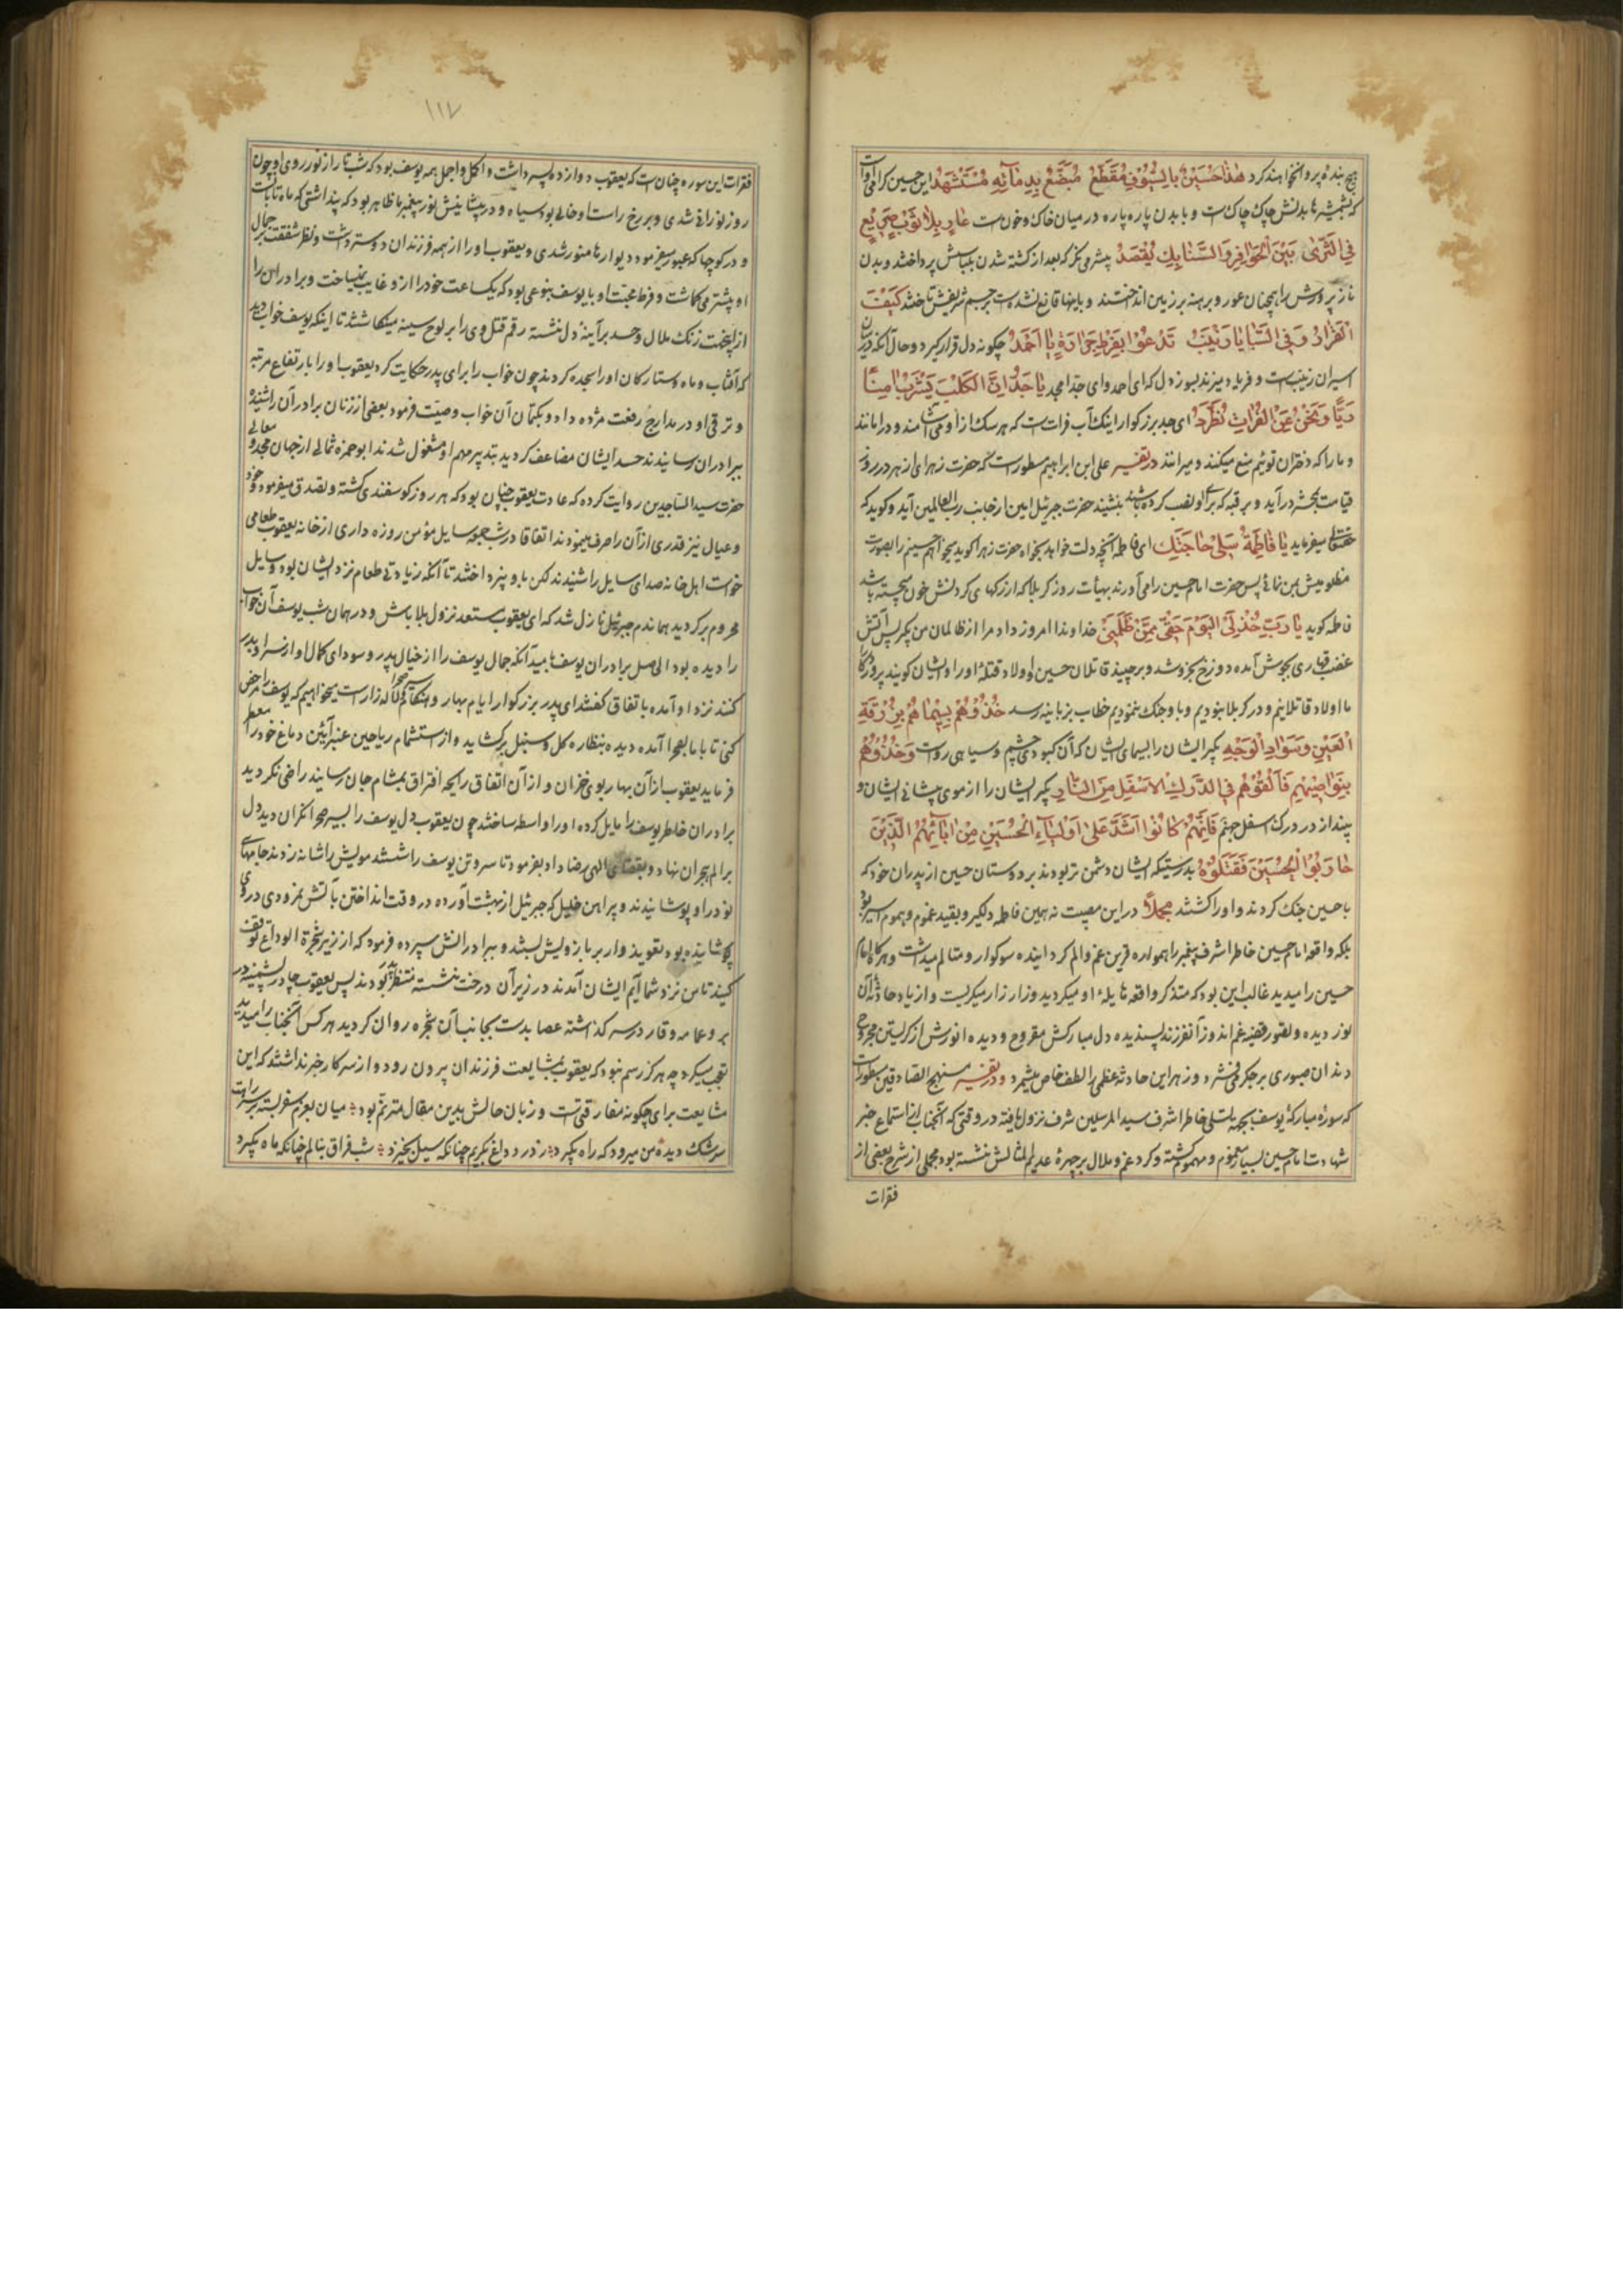 هیچ بنده پروا نخواهند کرد هٰذا حُسَیْنٌ بِالسُّیُوفِ مُقَطَّعٌ مُبَضَّعٌ بِدِمٰآئِهِ مُسْتَشْهَدٌ این حسین گرامی است
که بشمشیرها بدنش چاک چاکست و با بدن پاره پاره در میان خاک و خون است عٰارٍ بِلٰا ثَوْبٍ صَرِیعٍ
فِی الثَّرٰی بَیْنَ الْحَوٰافِرِ وَ السَّنٰابِكِ یُقْصَدُ پیشرمی نگر که بعد از کشته شدن بلباسش پرداختند و بدن
ناز پرورش را همچنان عور و برهنه بر زمین انداختند و باینها قانع نشده اسب بر جسم شریفش تاختند كَیْفَ
الْقَرٰارُ وَ فِی السَّبٰایٰا زَیْنَبُ تَدْعُوا بِفَرْطِ حَرٰارَةٍ یٰا اَحْمَدُ چگونه دل قرار گیرد و حال آنکه در میان
اسیران زینب است و فریاد میزند بسوز دل که ای احمد و ای جد امجد یٰا جَدُّ اِنَّ الْكَلْبَ یَشْرَبُ اٰمِنًا
رَیًّا وَ نَحْنُ عَنِ الْفُرٰاتِ نُطْرَدُ ای جد بزرگوار اینک آب فراتست که هر سک از او می آشامند و در امانند
و ما را که دختران توئیم منع میکنند و میرانند در تفسیر علی ابن ابراهیم مسطور است که حضرت زهرای ازهر در روز
قیامت بمحشر درآید و بر قبه که برای او نصب کرده باشند بنشیند حضرت جبرئیل امین از جانب رب العالمین آید و گوید که
حقتعالی میفرماید یٰا فٰاطِمَةُ سَلِی حٰاجَتَكِ ای فاطمه آنچه دلت خواهد بخواه حضرت زهرا گوید میخواهم حسینم را بصورت
مظلومیش بمن نمائی پس حضرت امام حسین را می آورند بهیأت روز کربلا که از رگهای گردنش خون میجسته باشد
فاطمه گوید یٰا رَبِّ خُذْ لِیَ الْیَوْمَ حَقِّی مِمَّنْ ظَلَمَنِی خداوندا امروز داد مرا از ظالمان من بگیر پس آتش
غضب قهاری بجوش آمده دوزخ بخروشد و برچیند قاتلان حسین و اولاد قتله او را و ایشان گویند پروردگارا
ما اولاد قاتلانیم و در کربلا نبودیم و با او جنک ننمودیم خطاب بزبانیه رسد خُذُوهُمْ بِسِیمٰاهُمْ بِزُرْقَةِ
الْعَیْنِ وَ سَوٰادِ الْوَجْهِ بگیر ایشان را بسیمای ایشان که آن کبودی چشم و سیاهی روست وَ خُذُوهُمْ
بِنَوٰاصِیهِمْ فَاَلْقُوهُمْ فِی الدَّرْكِ الْاَسْفَلِ مِنَ النّٰارِ بگیر ایشان را از موی پیشانی ایشان و
بینداز در درک اسفل جهنم فَاِنَّهُمْ كٰانُوا اَشَدَّ عَلیٰ اَوْلِیٰآءِ الْحُسَیْنِ مِنْ اٰبٰآئِهِمُ الَّذِینَ
حٰارَبُوا الْحُسَیْنَ فَقَتَلُوهُ بدرستیکه ایشان دشمن تر بودند بر دوستان حسین از پدران خود که
با حسین جنک کردند و او را کشتند مجملاً در این مصیبت نه همین فاطمه دلگیر و بقید غموم و هموم اسیر بود
بلکه واقعه امام حسین خاطر اشرف پیغمبر را همواره قرین غم و الم گردانیده سوگوار و متالم میداشت و هر گاه امام
حسین را میدید غالب این بود که متذکر واقعه هایله او میگردید و زار زار میگریست و از یاد حادثه آن
نور دیده و تصور قضیه غم اندوز آن فرزند پسندیده دل مبارکش مقروح و دیده انورش از گریستن مجروح
دندان صبوری بر جگر می فشرد و زهر این حادثه عظمی را لطف خاص میشمرد و در تفسیر منهج الصادقین مسطور است
که سوره مبارکه یوسف بجهة تسلی خاطر اشرف سید المرسلین شرف نزول یافته در وقتی که آنجناب از استماع خبر
شهادت امام حسین بسیار مغموم و مهموم گشته و گرد غم و ملال بر چهره عدیم المثالش نشسته بود مجملی از شرح بعضی از
فقرات
۱۱۷
فقرات این سوره چنان ست که یعقوب دوازده پسر داشت و اکمل و اجمل همه یوسف بود که شب تار از نور روی او چون
روز نورانی شدی و بر رخ راست او خالی بود سیاه و در پیشانیش نور پیغمبری ظاهر بود که پنداشتی که ماه تابانست
و در کوچها که عبور میفرمود دیوارها منور شدی و یعقوب او را از همه فرزندان دوستر داشت و نظر شفقت بر جمال
او بیشتر میگماشت و فرط محبت او با یوسف بنوعی بود که یکساعت خود را از او غایب نمیساخت و برادران را
ازین جهت زنک ملال و حسد بر آینه دل نشسته رقم قتل وی را بر لوح سینه مینگاشتند تا اینکه یوسف خواب دید
که آفتاب و ماه و ستارگان او را سجده کردند چون خواب را برای پدر حکایت کرد یعقوب او را بارتفاع مرتبه
و ترقی او در مدارج رفعت مژده داد و بکتمان آن خواب وصیت فرمود بعضی از زنان برادر آن را شنیده
ببرادران رسانیدند حسد ایشان مضاعف گردید بتدبیر مهم او مشغول شدند ابو حمزه ثمالی از جهان مجد و معالی
حضرت سید الساجدین روایت کرده که عادت یعقوب چنان بود که هر روز گوسفندی کشته و تصدق میفرمود و خود
و عیال نیز قدری از آن را صرف مینمودند اتفاقا در شب جمعه سایل مؤمن روزه داری از خانه یعقوب طعامی
خواست اهل خانه صدای سایل را شنیدند لکن باو نپرداختند تا آنکه زیادتی طعام نزد ایشان بود و سایل
محروم برگردید هماندم جبرئیل نازل شد که ای یعقوب مستعد نزول بلا باش و در همان شب یوسف آن خواب
را دیده بود الحاصل برادران یوسف بامید آنکه جمال یوسف را از خیال پدر و سودای کمال او از سر او بدر
کنند نزد او آمده باتفاق گفتند ای پدر بزرگوار ایام بهار و هنگام لاله زار است میخواهیم که یوسف را مرخص
کنی تا با ما بصحرا آمده دیده بنظاره گل و سنبل برگشاید و از استشمام ریاحین عنبر آئین دماغ خود را معطر
فرماید یعقوب از آن بهار بوی خزان و از آن اتفاق رایحه افتراق بمشام جان رسانید راضی نگردید
برادران خاطر یوسف را مایل کرده او را واسطه ساختند چون یعقوب دل یوسف را بسیر صحرا نگران دید دل
بر الم هجران نهاد و بقضای الهی رضا داد بفرمود تا سر و تن یوسف را شستند مویش را شانه زدند جامهای
نو در او پوشانیدند و پیراهن خلیل که جبرئیل از بهشت آورده در وقت انداختن بآتش نمرودی در وی
پوشانیده بود تعویذ وار بر بازویش بستند و ببرادرانش سپرده فرمود که از زیر شجرة الوداع توقف
کنید تا من نزد شما آیم ایشان آمدند در زیر آن درخت نشسته منتظر پدر بودند پس یعقوب چادر پشمینه در
بر و عمامه وقار در سر گذاشته عصا بدست بجانب آن شجره روان گردید هر کس آنجناب را میدید
تعجب میکرد چه هرگز رسم نبود که یعقوب بمشایعت فرزندان بیرون رود و از سر کار خبر نداشتند که این
مشایعت برای چگونه مفارقتی است و زبان حالش بدین مقال مترنم بود میان بعزم سفر بسته بر سر راهست
سرشک دیده من میرود که راه بگیرد ز درد داغ بگریم چنانکه سیل بخیزد شب فراق بنالم چنانکه ماه بگیرد